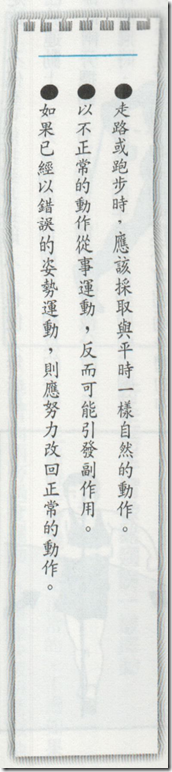 ●走路或跑步時，應該採取與平時一樣自然的動作。
●以不正常的動作從事運動，反而可能引發副作用。
●如果已經以錯誤的姿勢運動，則應努力改回正常的動作。